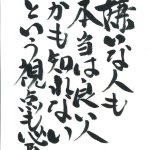 嫌いな人も
本当は良い人
かも知れない
という視点も忘